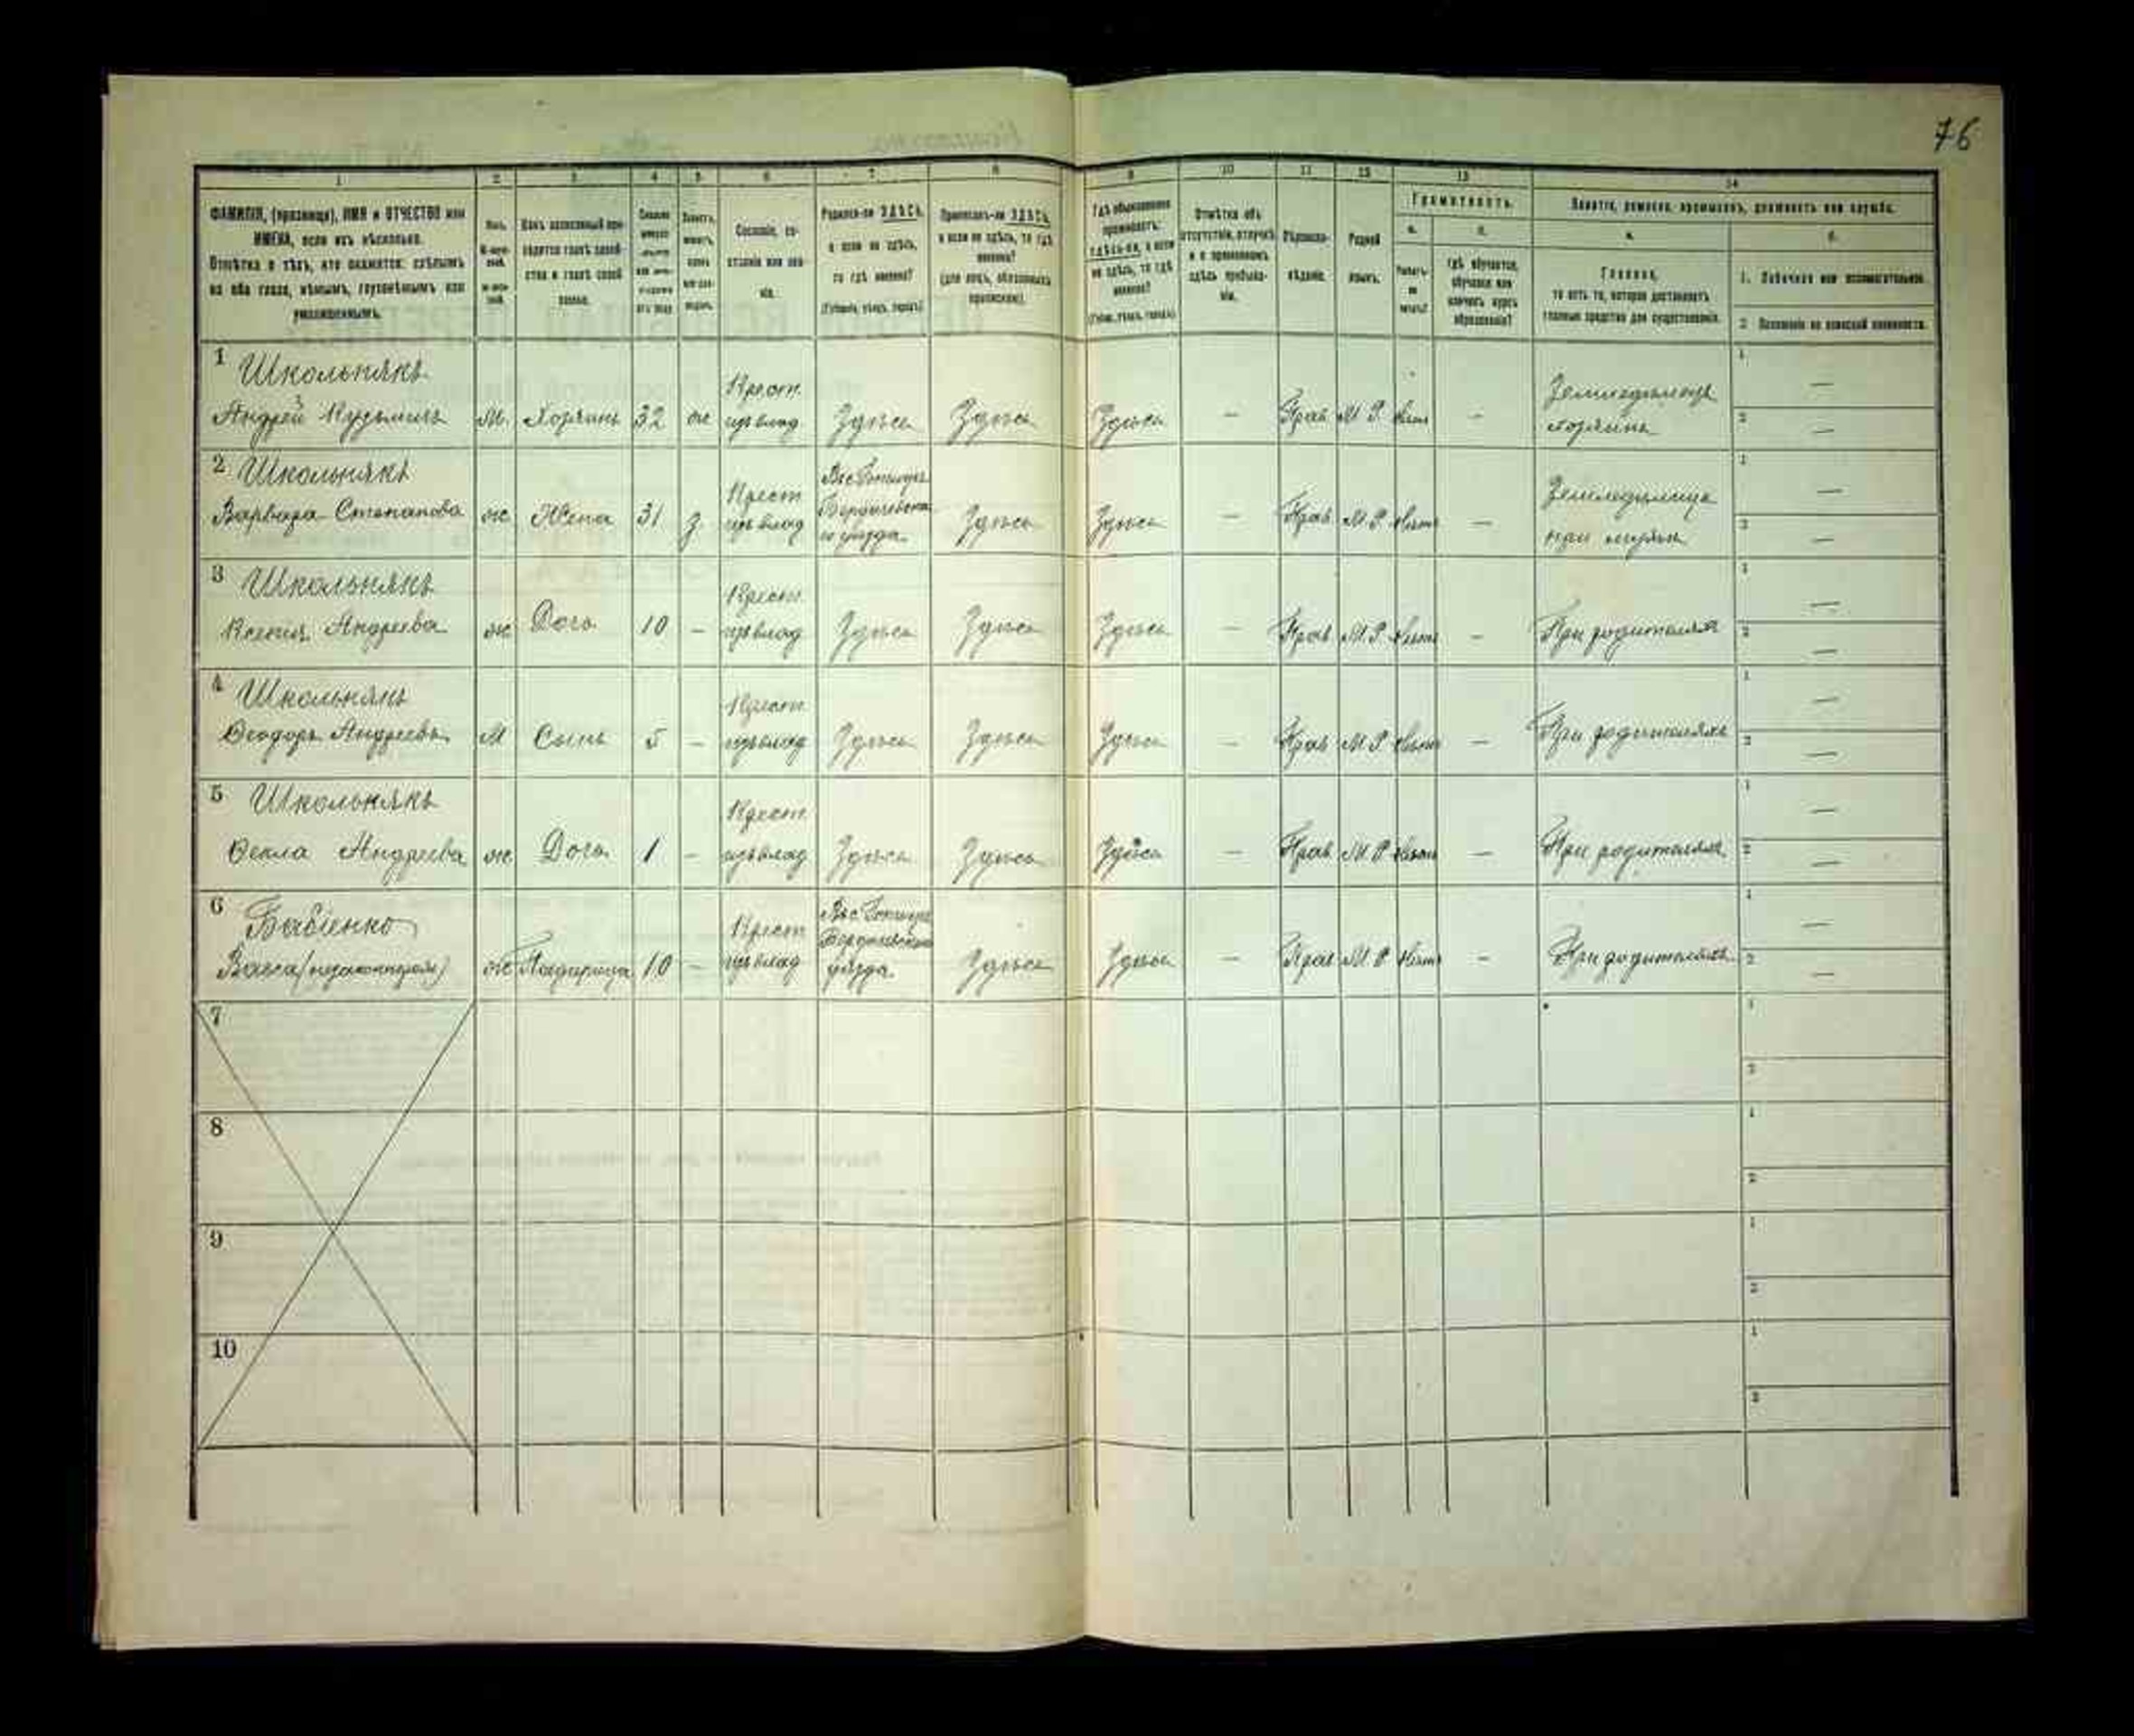 76
1 2 3 4 5 6 7 8 9 10 11 12 13 14
ФАМИЛІЯ, (прозвище), ИМЯ и ОТЧЕСТВО или
ИМЕНА, если ихъ нѣсколько.
Отмѣтка о тѣхъ, кто окажется: слѣпымъ
на оба глаза, нѣмымъ, глухонѣмымъ или
умалишеннымъ.
Полъ.
Сословіе, со-
стояніе или зва-
ніе.
Родился-ли ЗДѢСЬ,
а если не здѣсь,
то гдѣ именно?
(Губернія, уѣздъ, городъ)
Приписанъ-ли ЗДѢСЬ,
а если не здѣсь, то гдѣ
именно?
(для лицъ, обязанныхъ
припискою).
Гдѣ обыкновенно
проживаетъ:
здѣсь-ли, а если
не здѣсь, то гдѣ
именно?
(Губер., уѣздъ, городъ)
Отмѣтка объ
отсутствіи, отлучкѣ
и о временномъ
здѣсь пребыва-
ніи.
Вѣроиспо-
вѣданіе.
Родной
языкъ.
Грамотность.
а. б.
Умѣетъ-
ли
читать?
Гдѣ обучается,
обучался или
кончилъ курсъ
образованія?
Занятіе, ремесло, промыселъ, должность или служба.
а. б.
Главное,
то есть то, которое доставляетъ
главныя средства для существованія.
1. Побочное или вспомогательное.
2. Положеніе по воинской повинности.
1 Школьнякъ
Андрей Кузьминъ м. Хозяинъ 32 ж Крест. изъ влад Здѣсь Здѣсь Здѣсь — Прав М Р нѣтъ — Земледѣлецъ хозяинъ — —
2 Школьнякъ
Варвара Степанова ж Жена 31 з. Крест изъ влад Бердичевска го уѣзда Здѣсь Здѣсь — Прав М Р нѣтъ — Земледѣлица при мужѣ — —
3 Школьнякъ
Ксенія Андреева ж Дочь 10 — Крест изъ влад Здѣсь Здѣсь Здѣсь — Прав М Р нѣтъ — При родителяхъ — —
4 Школьнякъ
Ѳеодоръ Андреевъ М Сынъ 5 — Крест изъ влад Здѣсь Здѣсь Здѣсь — Прав М Р нѣтъ — При родителяхъ — —
5 Школьнякъ
Ѳекла Андреева ж Дочь 1 — Крест изъ влад Здѣсь Здѣсь Здѣсь — Прав М Р нѣтъ — При родителяхъ — —
6 Бабіенко
ж 10 — Крест изъ влад Бердичевскаго уѣзда Здѣсь Здѣсь — Прав М Р нѣтъ — При родителяхъ — —
7
8
9
10